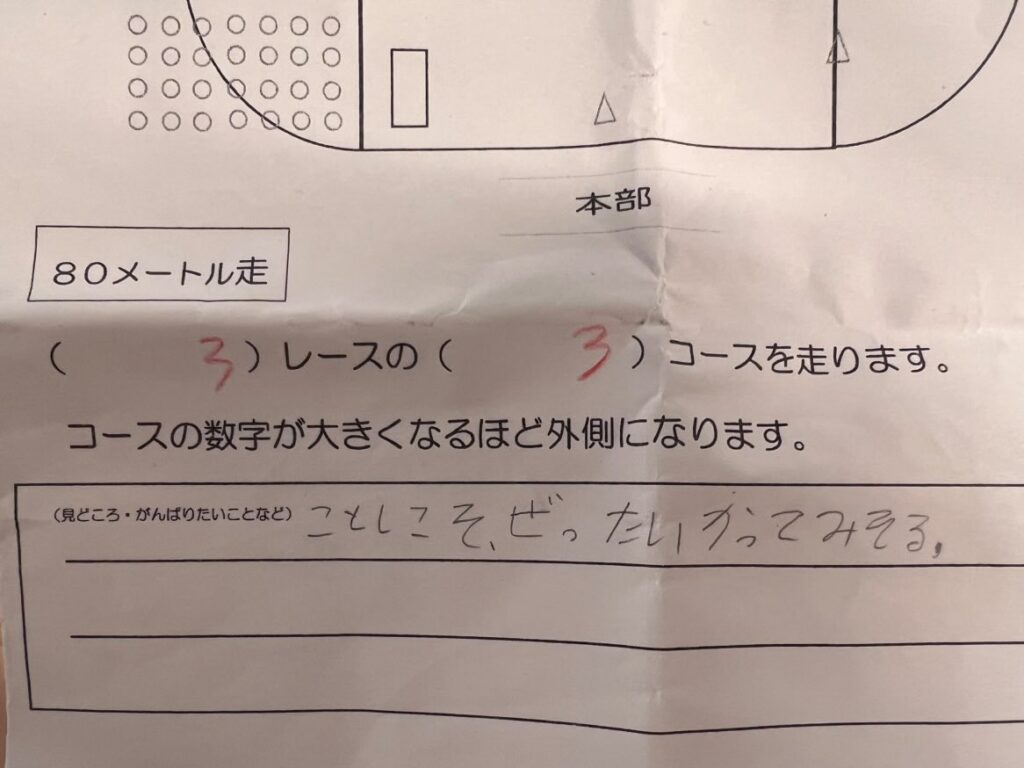 本部
80メートル走
( 3 )レースの( 3 )コースを走ります。
コースの数字が大きくなるほど外側になります。
(見どころ・がんばりたいことなど) ことしこそ、ぜったいかってみそる。